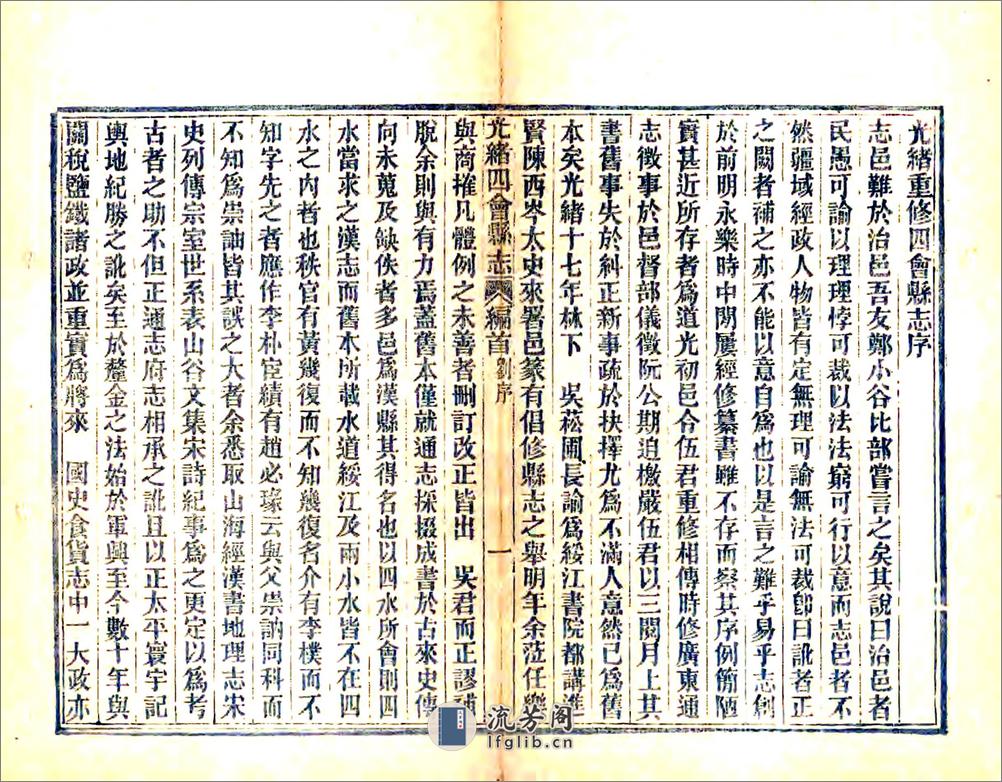 光緒重修四會縣志序
志邑難於治邑吾友鄭小谷比部嘗言之矣其說曰治邑者
民愚可諭以理理悖可裁以法法窮可行以意而志邑者不
然疆域經政人物皆有定無理可諭無法可裁卽曰訛者正
之闕者補之亦不能以意自爲也以是言之難乎易乎志創
於前明永樂時中閒屢經修纂書雖不存而察其序例簡陋
實甚近所存者爲道光初邑令伍君重修相傳時修廣東通
志徵事於邑督部儀徵阮公期迫檄嚴伍君以三閱月上其
書舊事失於糾正新事疏於抉擇尤爲不滿人意然已爲舊
本矣光緒十七年林下 吳菘圃長諭爲綏江書院都講
賢陳西岑太史來署邑篆有倡修縣志之舉明年余蒞任樂
與商搉凡體例之未善者刪訂改正皆出 吳君而正謬補
脫余則與有力焉蓋舊本僅就通志採掇成書於古來史傳
向未蒐及缺佚者多邑爲漢縣其得名也以四水所會則四
水當求之漢志而舊本所載水道綏江及兩小水皆不在四
水之內者也秩官有黃幾復而不知幾復名介有李樸而不
知字先之者應作李朴宦績有趙必瑑云與父崇訥同科而
不知爲崇詘皆其誤之大者余悉取山海經漢書地理志宋
史列傳宗室世系表山谷文集宋詩紀事爲之更定以爲考
古者之助不但正通志府志相承之訛且以正太平寰宇記
輿地紀勝之訛矣至於釐金之法始於軍興至今數十年與
關稅鹽鐵諸政並重實爲將來 國史食貨志中一大政亦
光緒四會縣志 編首 劉序 一
流芳阁
lfglib.cn